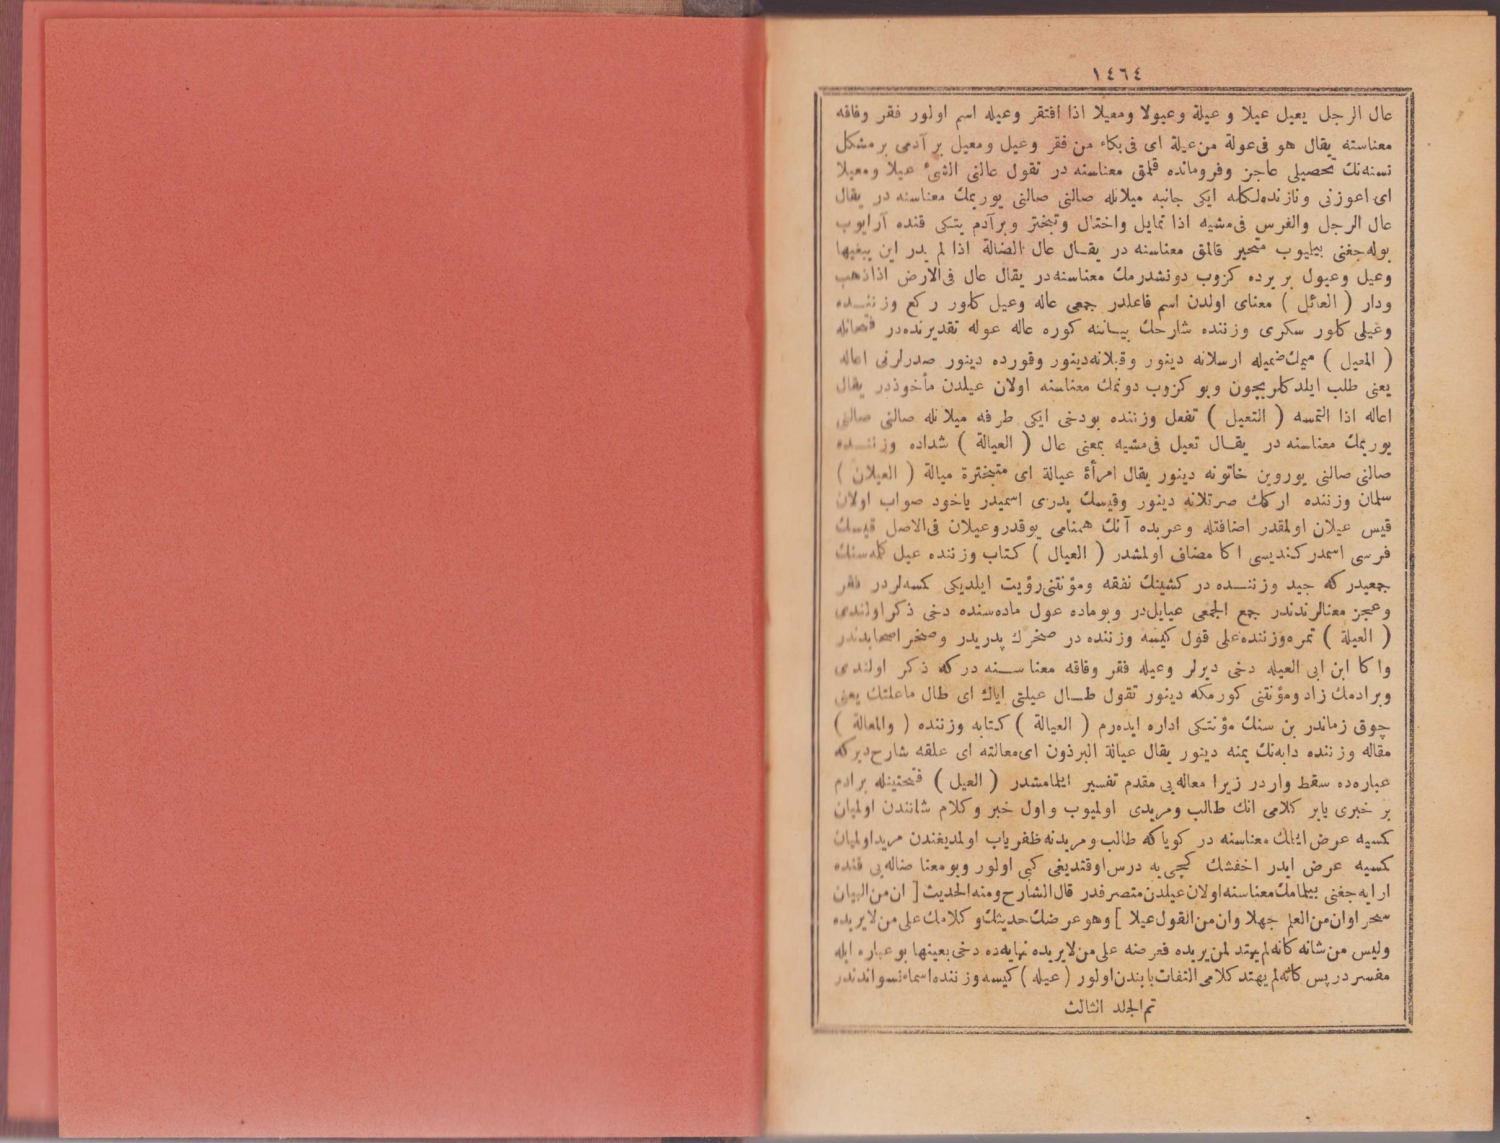 ١٤٦٤
عال الرجل يعيل عيلا و عيلة وعيولا ومعيلا اذا افتقر وعيله اسم اولور فقر وفاقه
معناسنه يقال هو فى عولة من عيلة اى فى بكاء من فقر وعيل ومعيل بر آدمى بر مشكل
نسنه‌نك تحصيلى عاجز وفرومانده قلمق معناسنه در تقول عالنى الشئ عيلا ومعيلا
اى اعوزنى ونازنده‌لكله ايكى جانبه ميلانله صالنى صالنى يوريمك معناسنه در يقال
عال الرجل والفرس فى مشيه اذا تمايل واختال وتبختر وبر آدم يتكى قنده آرايوب
بوله‌جغنى بيليوب متحير قالمق معناسنه در يقال عال الضالة اذا لم يدر اين يبغيها
وعيل وعيول بر يرده كزوب دونشدرمك معناسنه در يقال عال فى الارض اذا ذهب
ودار ( العائل ) معناى اولدن اسم فاعلدر جمعى عاله وعيل كلور ركع وزننده
وعيلى كلور سكرى وزننده شارحك بياننه كوره عاله عوله تقديرنده در فتحاتله
( المعيل ) ميمك ضميله ارسلانه دينور وقبلانه دينور وقورده دينور صدرلرنى اعاله
يعنى طلب ايلدكلريچون وبو كزوب دونمك معناسنه اولان عيلدن مأخوذدر يقال
اعاله اذا التمسه ( التعيل ) تفعل وزننده بودخى ايكى طرفه ميلانله صالنى صالنى
يوريمك معناسنه در يقال تعيل فى مشيه بمعنى عال ( العيالة ) شداده وزننده
صالنى صالنى يوروين خاتونه دينور يقال امرأة عيالة اى متبخترة ميالة ( العيلان )
سلمان وزننده اركك صرتلانه دينور وقيسك پدرى اسميدر ياخود صواب اولان
قيس عيلان اولمقدر اضافتله وعربده آنك همنامى يوقدر وعيلان فى الاصل قيسك
فرسى اسمدر كنديسى اكا مضاف اولمشدر ( العيال ) كتاب وزننده عيل كله‌سنك
جمعيدر كه جيد وزننده در كشينك نفقه ومؤنتنى رؤيت ايلديكى كمسه‌لردر فقر
وعجز معنالرندندر جمع الجمعى عيايل در وبو ماده عول ماده‌سنده دخى ذكر اولندى
( العيلة ) تمره وزننده على قول كيسه وزننده در صخرك پدريدر وصخر اصحابدندر
واكا ابن ابى العيله دخى ديرلر وعيله فقر وفاقه معناسنه در كه ذكر اولندى
وبر ادمك زاد ومؤنتنى كورمكه دينور تقول طال عيلتى اياك اى طال ماعلتك يعنى
چوق زماندر بن سنك مؤنتكى اداره ايده‌رم ( العيالة ) كتابه وزننده ( والمعالة )
مقاله وزننده دابه‌نك يمنه دينور يقال عيالة البرذون اى معالته اى علفه شارح دير كه
عباره‌ده سقط واردر زيرا معاله‌يى مقدم تفسير ايلمامشدر ( العيل ) فتحتينله بر ادم
بر خبرى يابر كلامى انك طالب ومريدى اولميوب واول خبر وكلام شانندن اولميان
كمسيه عرض ايلمك معناسنه در كوياكه طالب ومريدنه ظفرياب اولمديغندن مريد اولميان
كمسيه عرض ايدر اخفشك كچى‌يه درس اوقتديغى كبى اولور وبو معنا ضاله‌يى قنده
ارايه‌جغنى بيلمامك معناسنه اولان عيلدن متصرفدر قال الشارح ومنه الحديث [ ان من البيان
سحرا وان من العلم جهلا وان من القول عيلا ] وهو عرضك حديثك وكلامك على من لا يريده
وليس من شانه كانه لم يهتد لمن يريده فعرضه على من لا يريده نهايه‌ده دخى بعينها بو عباره ايله
مفسردر پس كانه لم يهتد كلامى التفات بابندن اولور ( عيله ) كيسه وزننده اسماء نسواندندر
تم الجلد الثالث